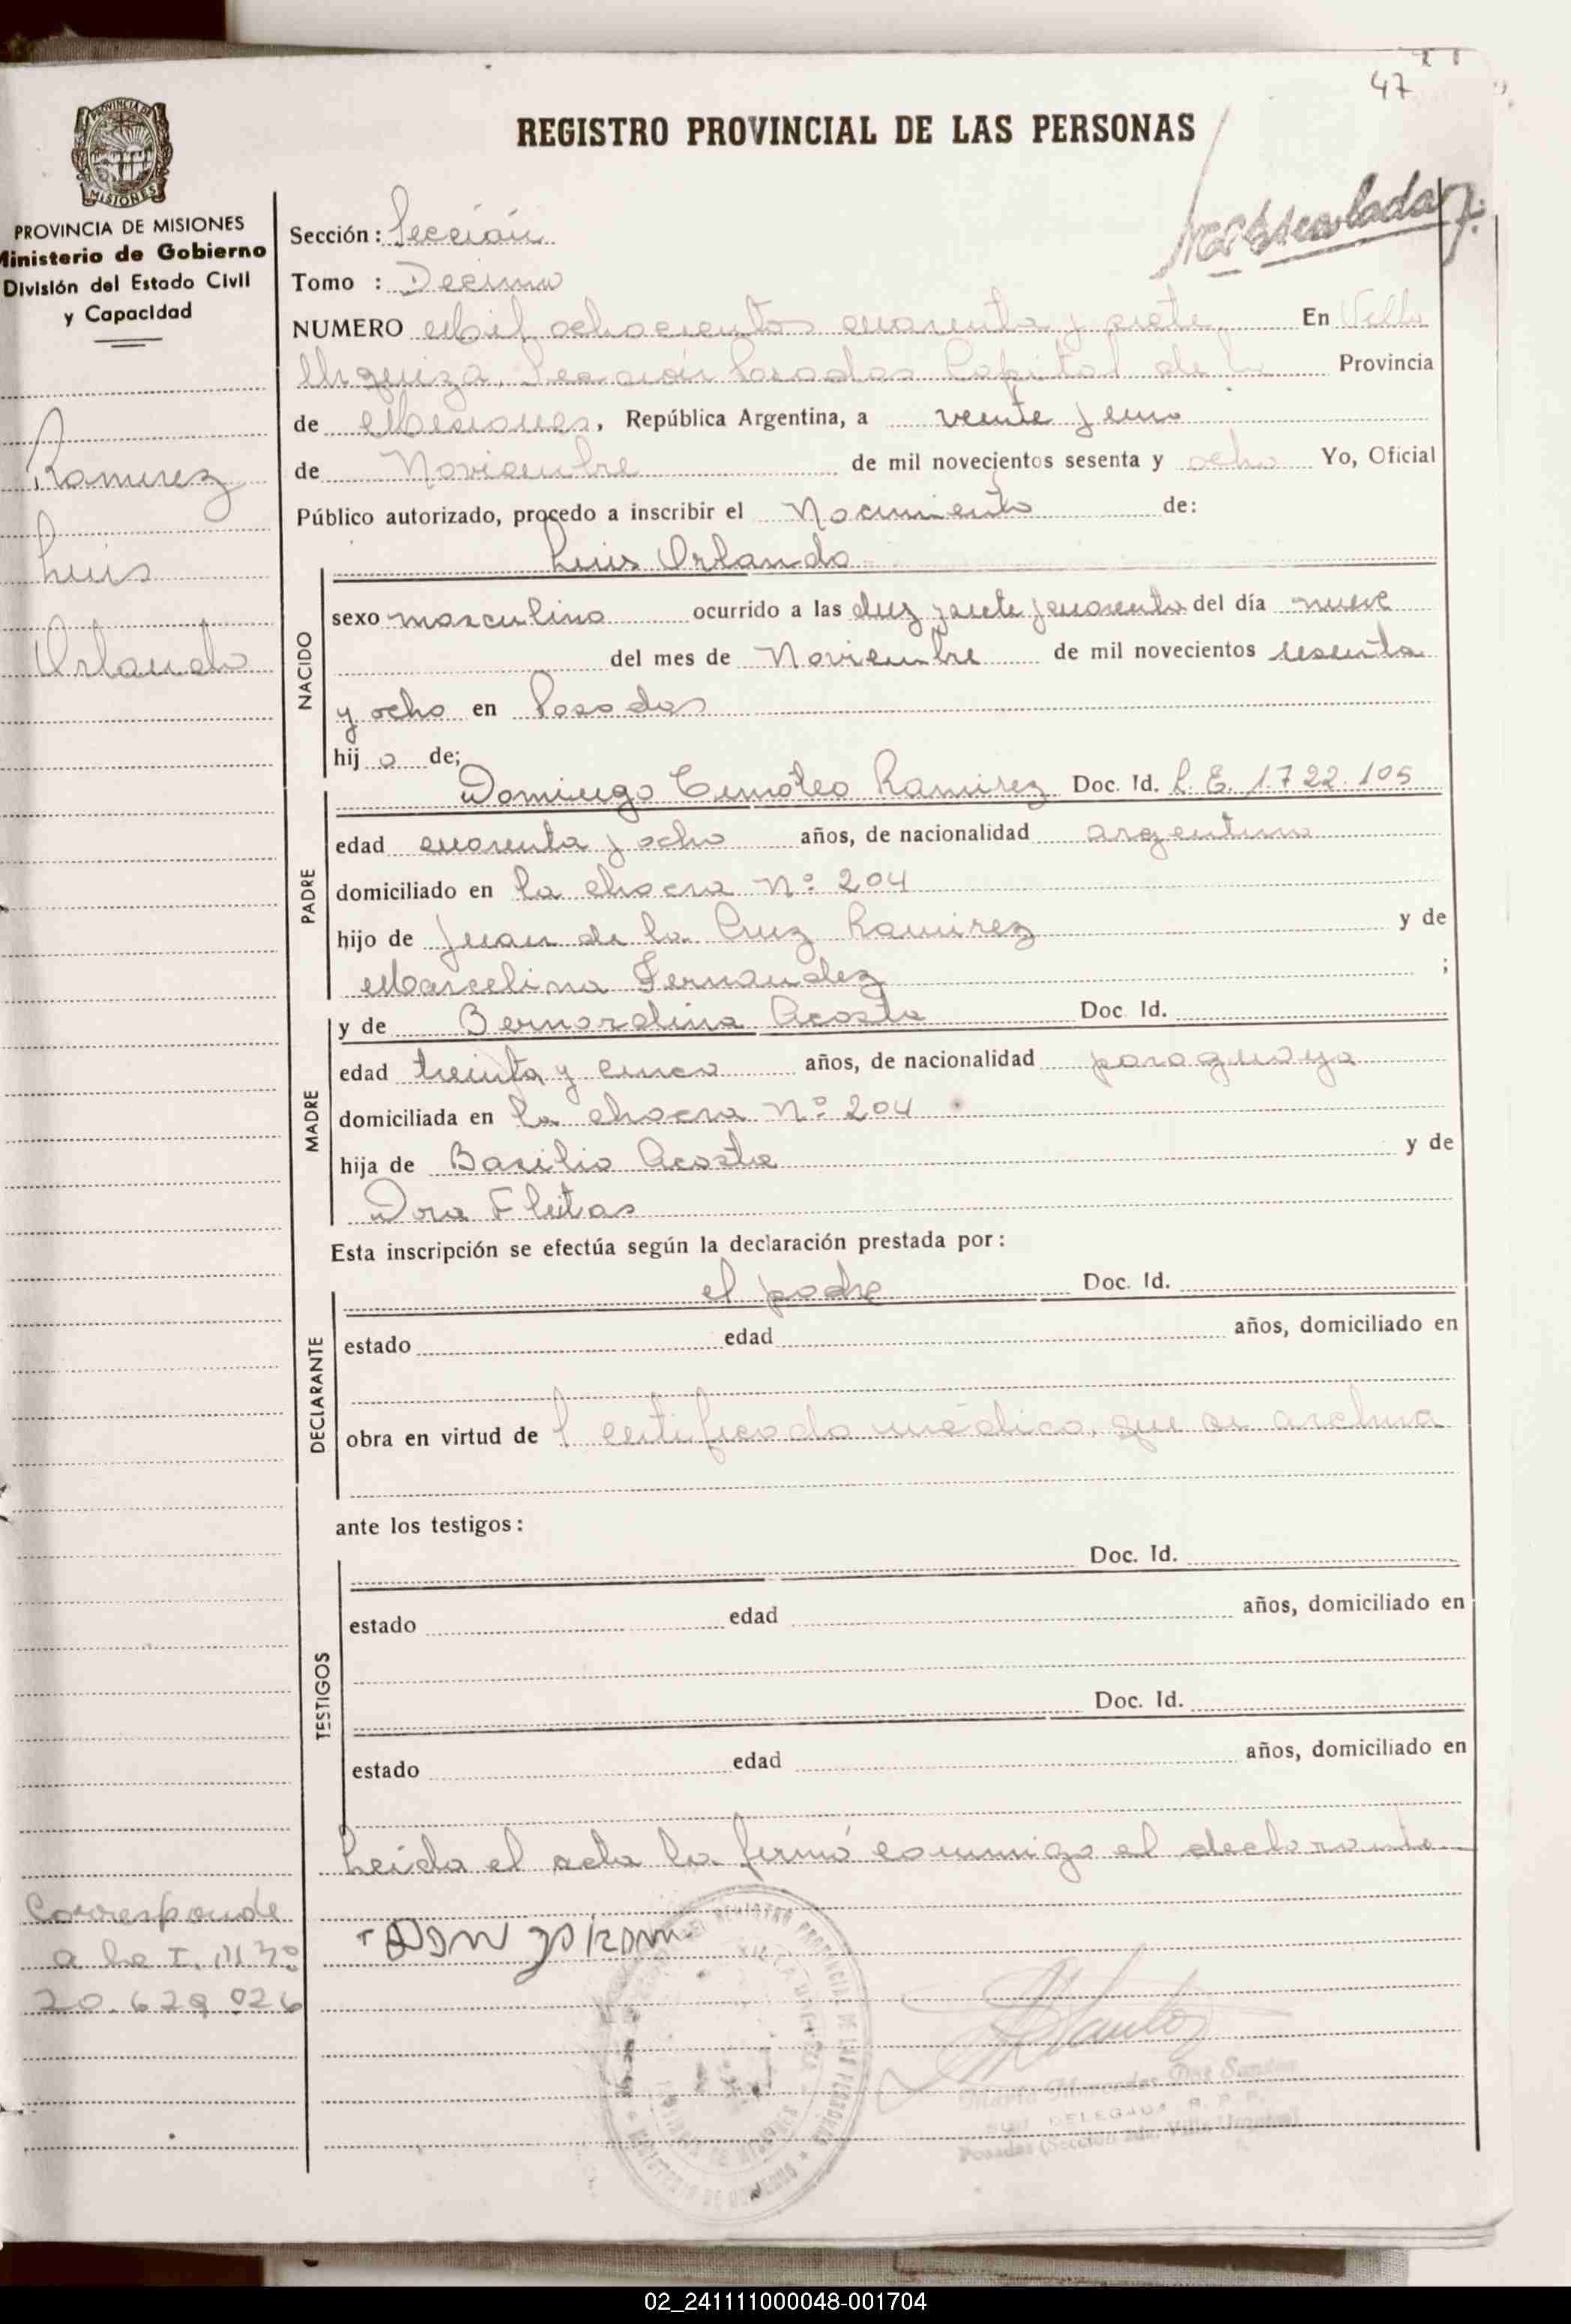 47
REGISTRO PROVINCIAL DE LAS PERSONAS
PROVINCIA DE MISIONES
Ministerio de Gobierno
División del Estado Civil
y Capacidad
Ramirez
Luis
Orlando
Sección: Sección
Tomo : Decimo
NUMERO Mil ochocientos cuarenta y siete, En Villa
Urquiza, Sección Posadas Capital de la Provincia
de Misiones, República Argentina, a veinte y uno
de Noviembre de mil novecientos sesenta y ocho Yo, Oficial
Público autorizado, procedo a inscribir el Nacimiento de:
Luis Orlando
NACIDO
sexo masculino ocurrido a las diez y siete y cuarenta del día nueve
del mes de Noviembre de mil novecientos sesenta
y ocho en Posadas
hijo de;
PADRE
Domingo Timoteo Ramirez Doc. Id. L.E. 1.722.105
edad cuarenta y ocho años, de nacionalidad argentino
domiciliado en la chacra Nº 204
hijo de Juan de la Cruz Ramirez y de
Marcelina Fernandez ;
MADRE
y de Bernardina Acosta Doc. Id.
edad treinta y cinco años, de nacionalidad paraguaya
domiciliada en la chacra Nº 204
hija de Basilio Acosta y de
Dora Fleitas
Esta inscripción se efectúa según la declaración prestada por:
DECLARANTE
el padre Doc. Id.
estado edad años, domiciliado en
obra en virtud del certificado médico, que se archiva
ante los testigos:
TESTIGOS
Doc. Id.
estado edad años, domiciliado en
Doc. Id.
estado edad años, domiciliado en
Leida el acta la firmó conmigo el declarante
Corresponde
a la I. M Nº
20.629.026
DELEGADA R. P. P.
Posadas (Sección 2da. Villa Urquiza)
02_241111000048-001704